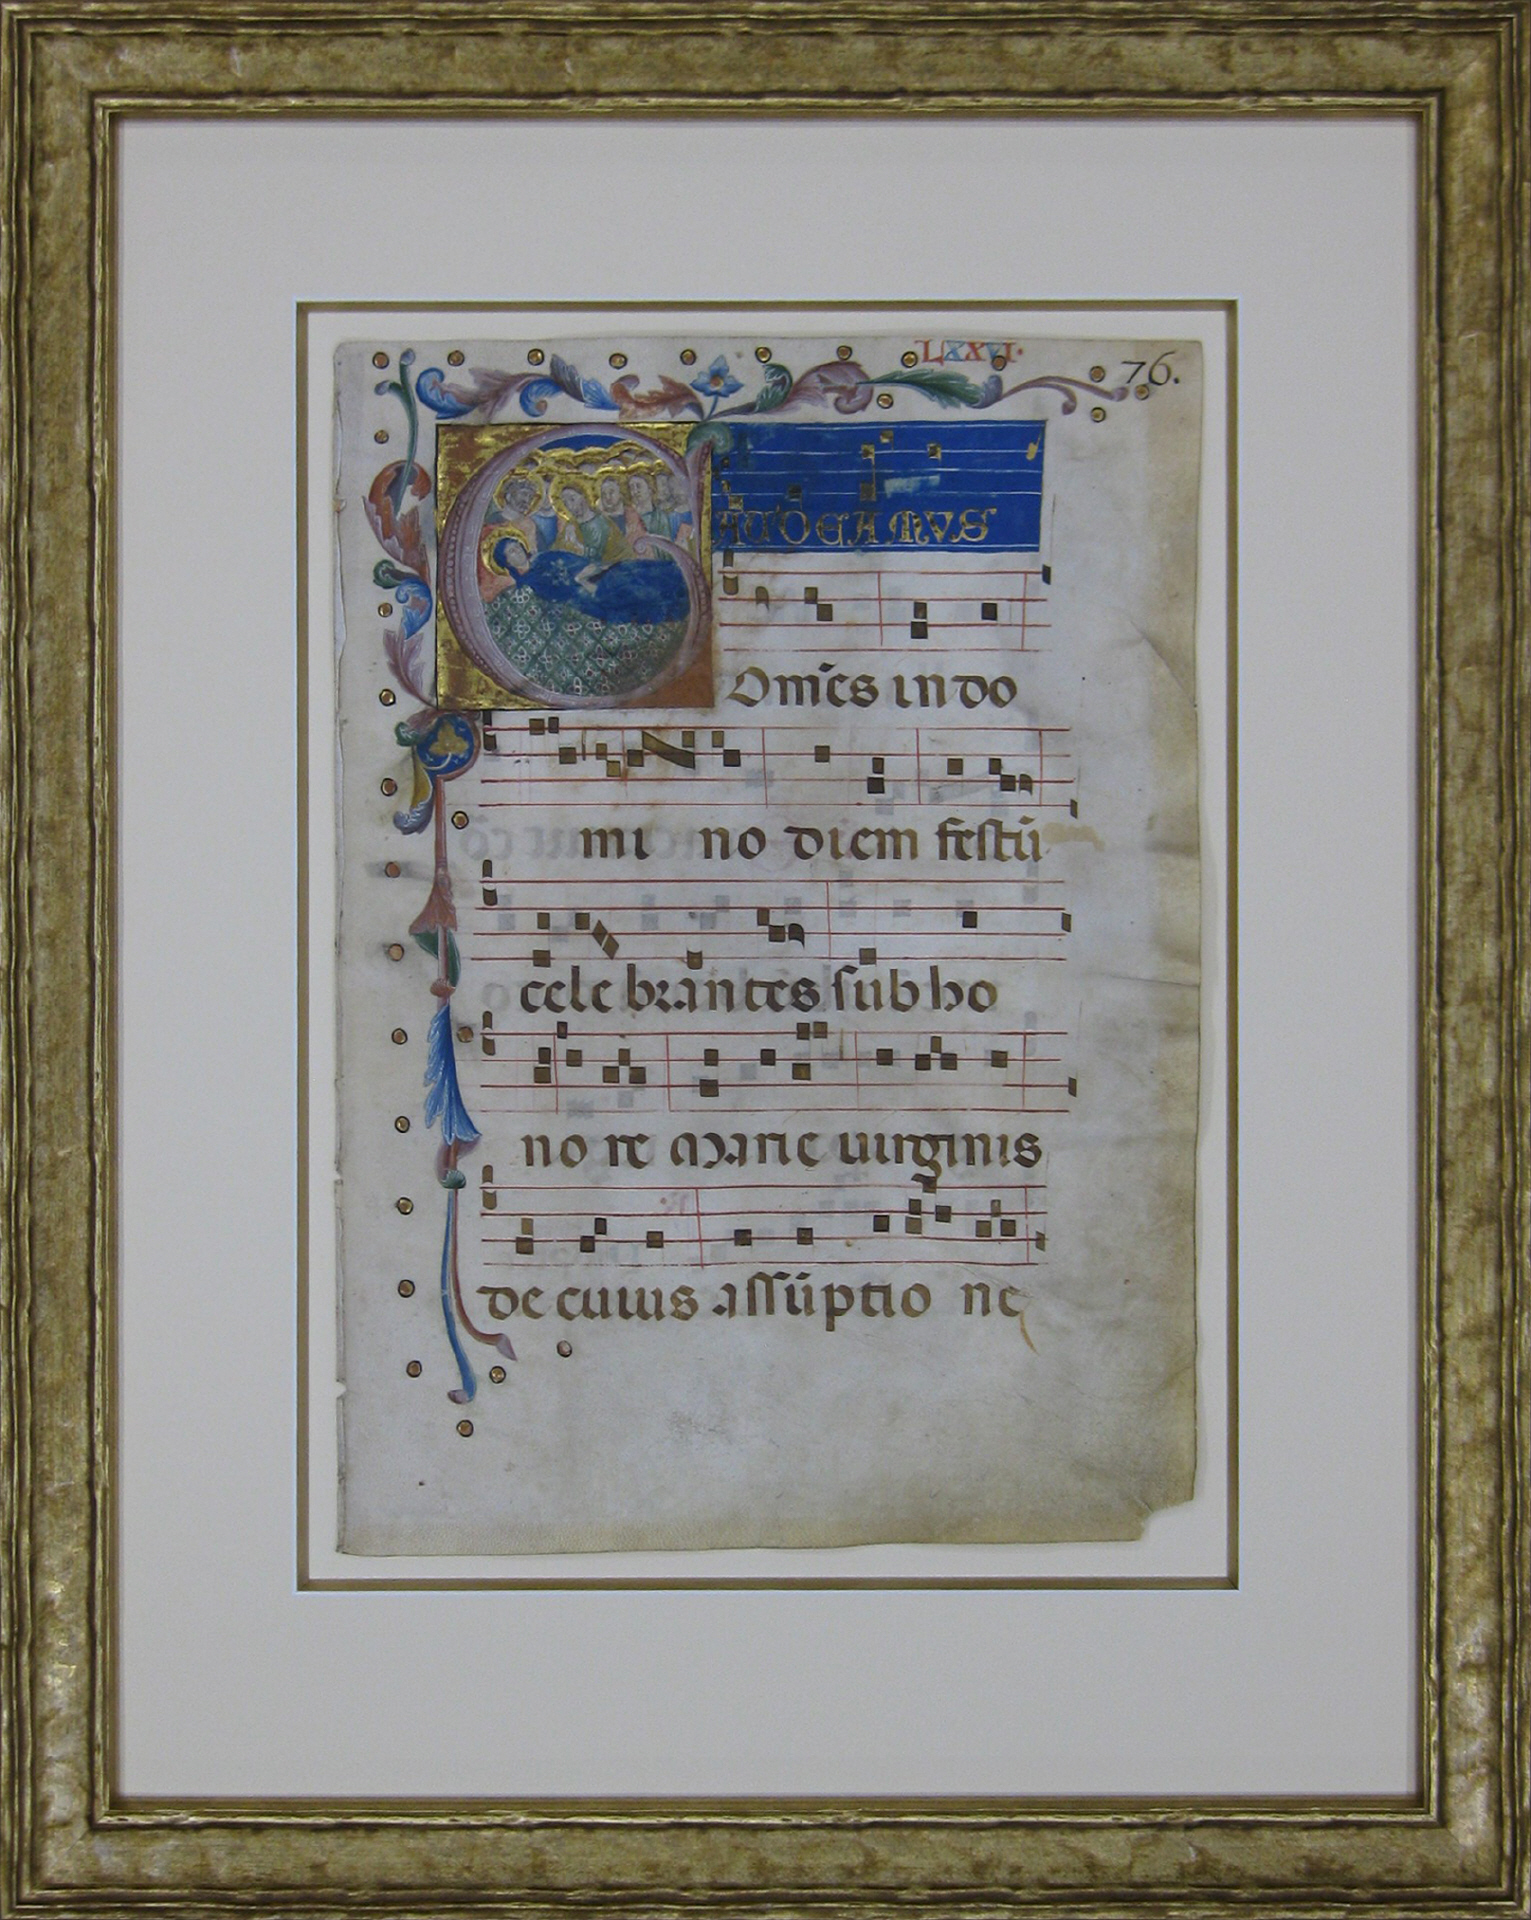 LXXVI·
76.
GAUDEAMUS
Om̄es in do
mi no diem festū
cele brantes sub ho
no re Marie uirginis
de cuius assūptio ne